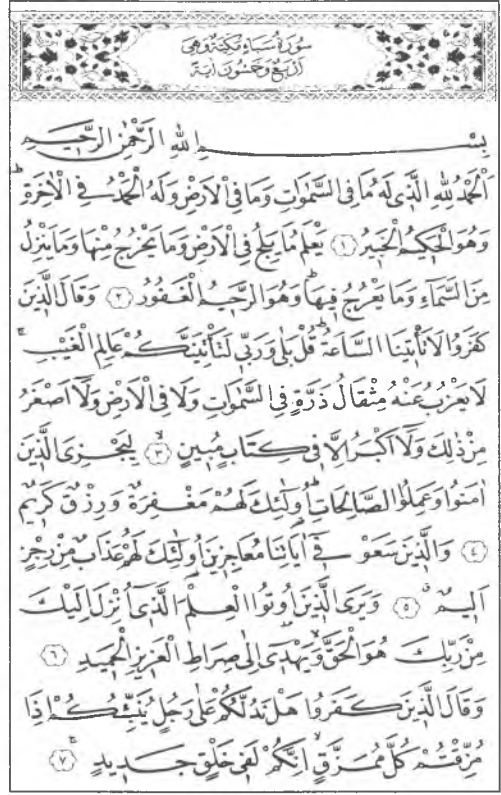 سُورَةُ سَبَاءٍ مَكِّيَّةٌ وَهِىَ
اَرْبَعٌ وَخَمْسُونَ اٰيَةً
بِسْمِ اللّٰهِ الرَّحْمٰنِ الرَّحِيمِ
اَلْحَمْدُ لِلّٰهِ الَّذِى لَهُ مَا فِى السَّمٰوَاتِ وَمَا فِى الْاَرْضِ وَلَهُ الْحَمْدُ فِى الْاٰخِرَةِۜ
وَهُوَ الْحَكِيمُ الْخَبِيرُ ﴿١﴾ يَعْلَمُ مَا يَلِجُ فِى الْاَرْضِ وَمَا يَخْرُجُ مِنْهَا وَمَا يَنْزِلُ
مِنَ السَّمَاءِ وَمَا يَعْرُجُ فِيهَاۜ وَهُوَ الرَّحِيمُ الْغَفُورُ ﴿٢﴾ وَقَالَ الَّذِينَ
كَفَرُوا لَا تَأْتِينَا السَّاعَةُۜ قُلْ بَلٰى وَرَبِّى لَتَأْتِيَنَّكُمْ عَالِمِ الْغَيْبِۚ
لَا يَعْزُبُ عَنْهُ مِثْقَالُ ذَرَّةٍ فِى السَّمٰوَاتِ وَلَا فِى الْاَرْضِ وَلَا اَصْغَرُ
مِنْ ذٰلِكَ وَلَا اَكْبَرُ اِلَّا فِى كِتَابٍ مُبِينٍۙ ﴿٣﴾ لِيَجْزِىَ الَّذِينَ
اٰمَنُوا وَعَمِلُوا الصَّالِحَاتِۜ اُولٰئِكَ لَهُمْ مَغْفِرَةٌ وَرِزْقٌ كَرِيمٌ
﴿٤﴾ وَالَّذِينَ سَعَوْ فِى اٰيَاتِنَا مُعَاجِزِينَ اُولٰئِكَ لَهُمْ عَذَابٌ مِنْ رِجْزٍ
اَلِيمٌ ﴿٥﴾ وَيَرَى الَّذِينَ اُوتُوا الْعِلْمَ الَّذِى اُنْزِلَ اِلَيْكَ
مِنْ رَبِّكَ هُوَ الْحَقَّۙ وَيَهْدِى اِلٰى صِرَاطِ الْعَزِيزِ الْحَمِيدِ ﴿٦﴾
وَقَالَ الَّذِينَ كَفَرُوا هَلْ نَدُلُّكُمْ عَلٰى رَجُلٍ يُنَبِّئُكُمْ اِذَا
مُزِّقْتُمْ كُلَّ مُمَزَّقٍۙ اِنَّكُمْ لَفِى خَلْقٍ جَدِيدٍۚ ﴿٧﴾